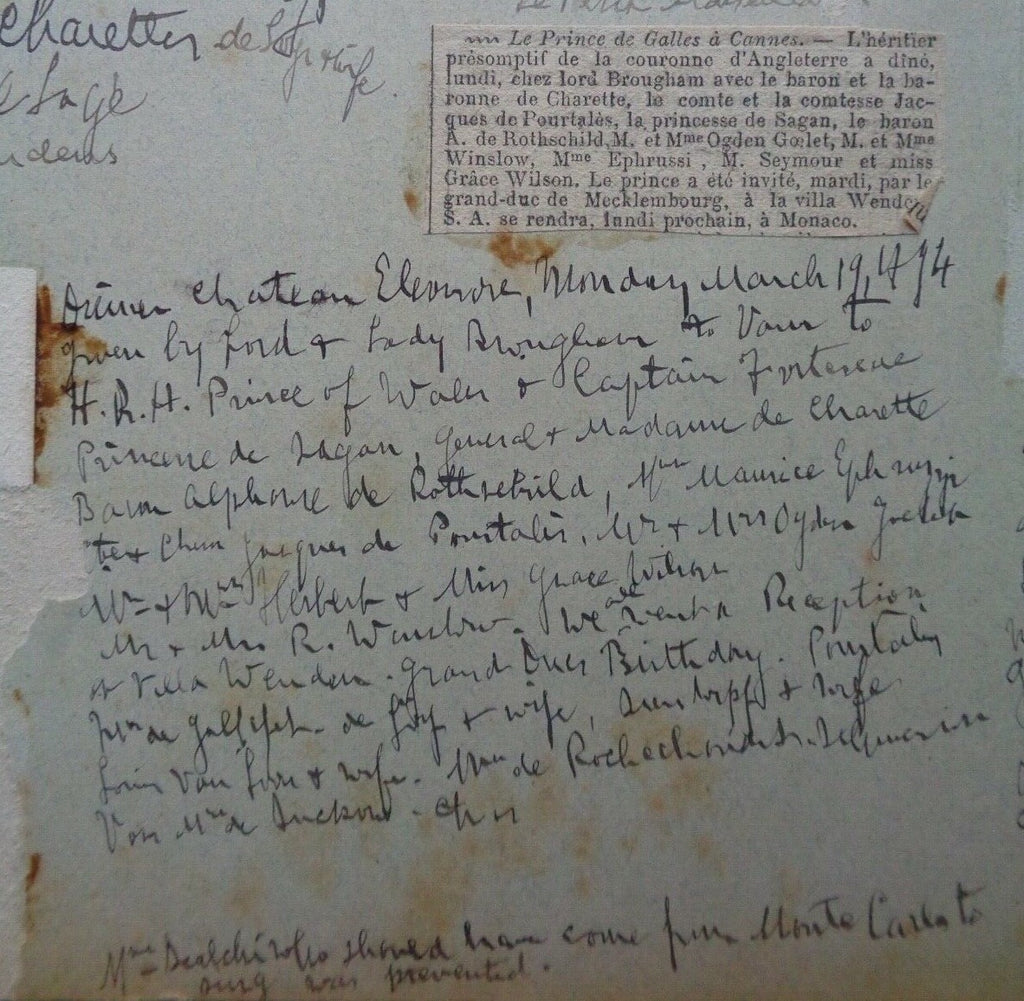 Charette de
Sage
Le Prince de Galles à Cannes. — L'héritier
présomptif de la couronne d'Angleterre a dîné,
lundi, chez lord Brougham avec le baron et la ba-
ronne de Charette, le comte et la comtesse Jac-
ques de Pourtalès, la princesse de Sagan, le baron
A. de Rothschild, M. et Mme Ogden Gœlet, M. et Mme
Winslow, Mme Ephrussi, M. Seymour et miss
Grâce Wilson. Le prince a été invité, mardi, par le
grand-duc de Mecklembourg, à la villa Wenden
S. A. se rendra, lundi prochain, à Monaco.
Dinner Chateau Eleonore, Monday March 19, 1894
given by Lord & Lady Brougham & Vaux to
H.R.H. Prince of Wales & Captain Fortescue
Princesse de Sagan, General & Madame de Charette
Baron Alphonse de Rothschild, Mme Maurice Ephrussi
Jacques de Pourtalès, Mr & Mrs Ogden Goelet
Herbert & Miss Grace Wilson
Mr & Mrs R. Winslow. We all went a Reception
at Villa Wenden. Grand Duc's Birthday. Pourtalès
Mme de & wife, & wife
Louis Von & wife. Mme de Rochechouart.
Von Mme de
Mme Scalchi who should have come from Monte Carlo to
sing was prevented.